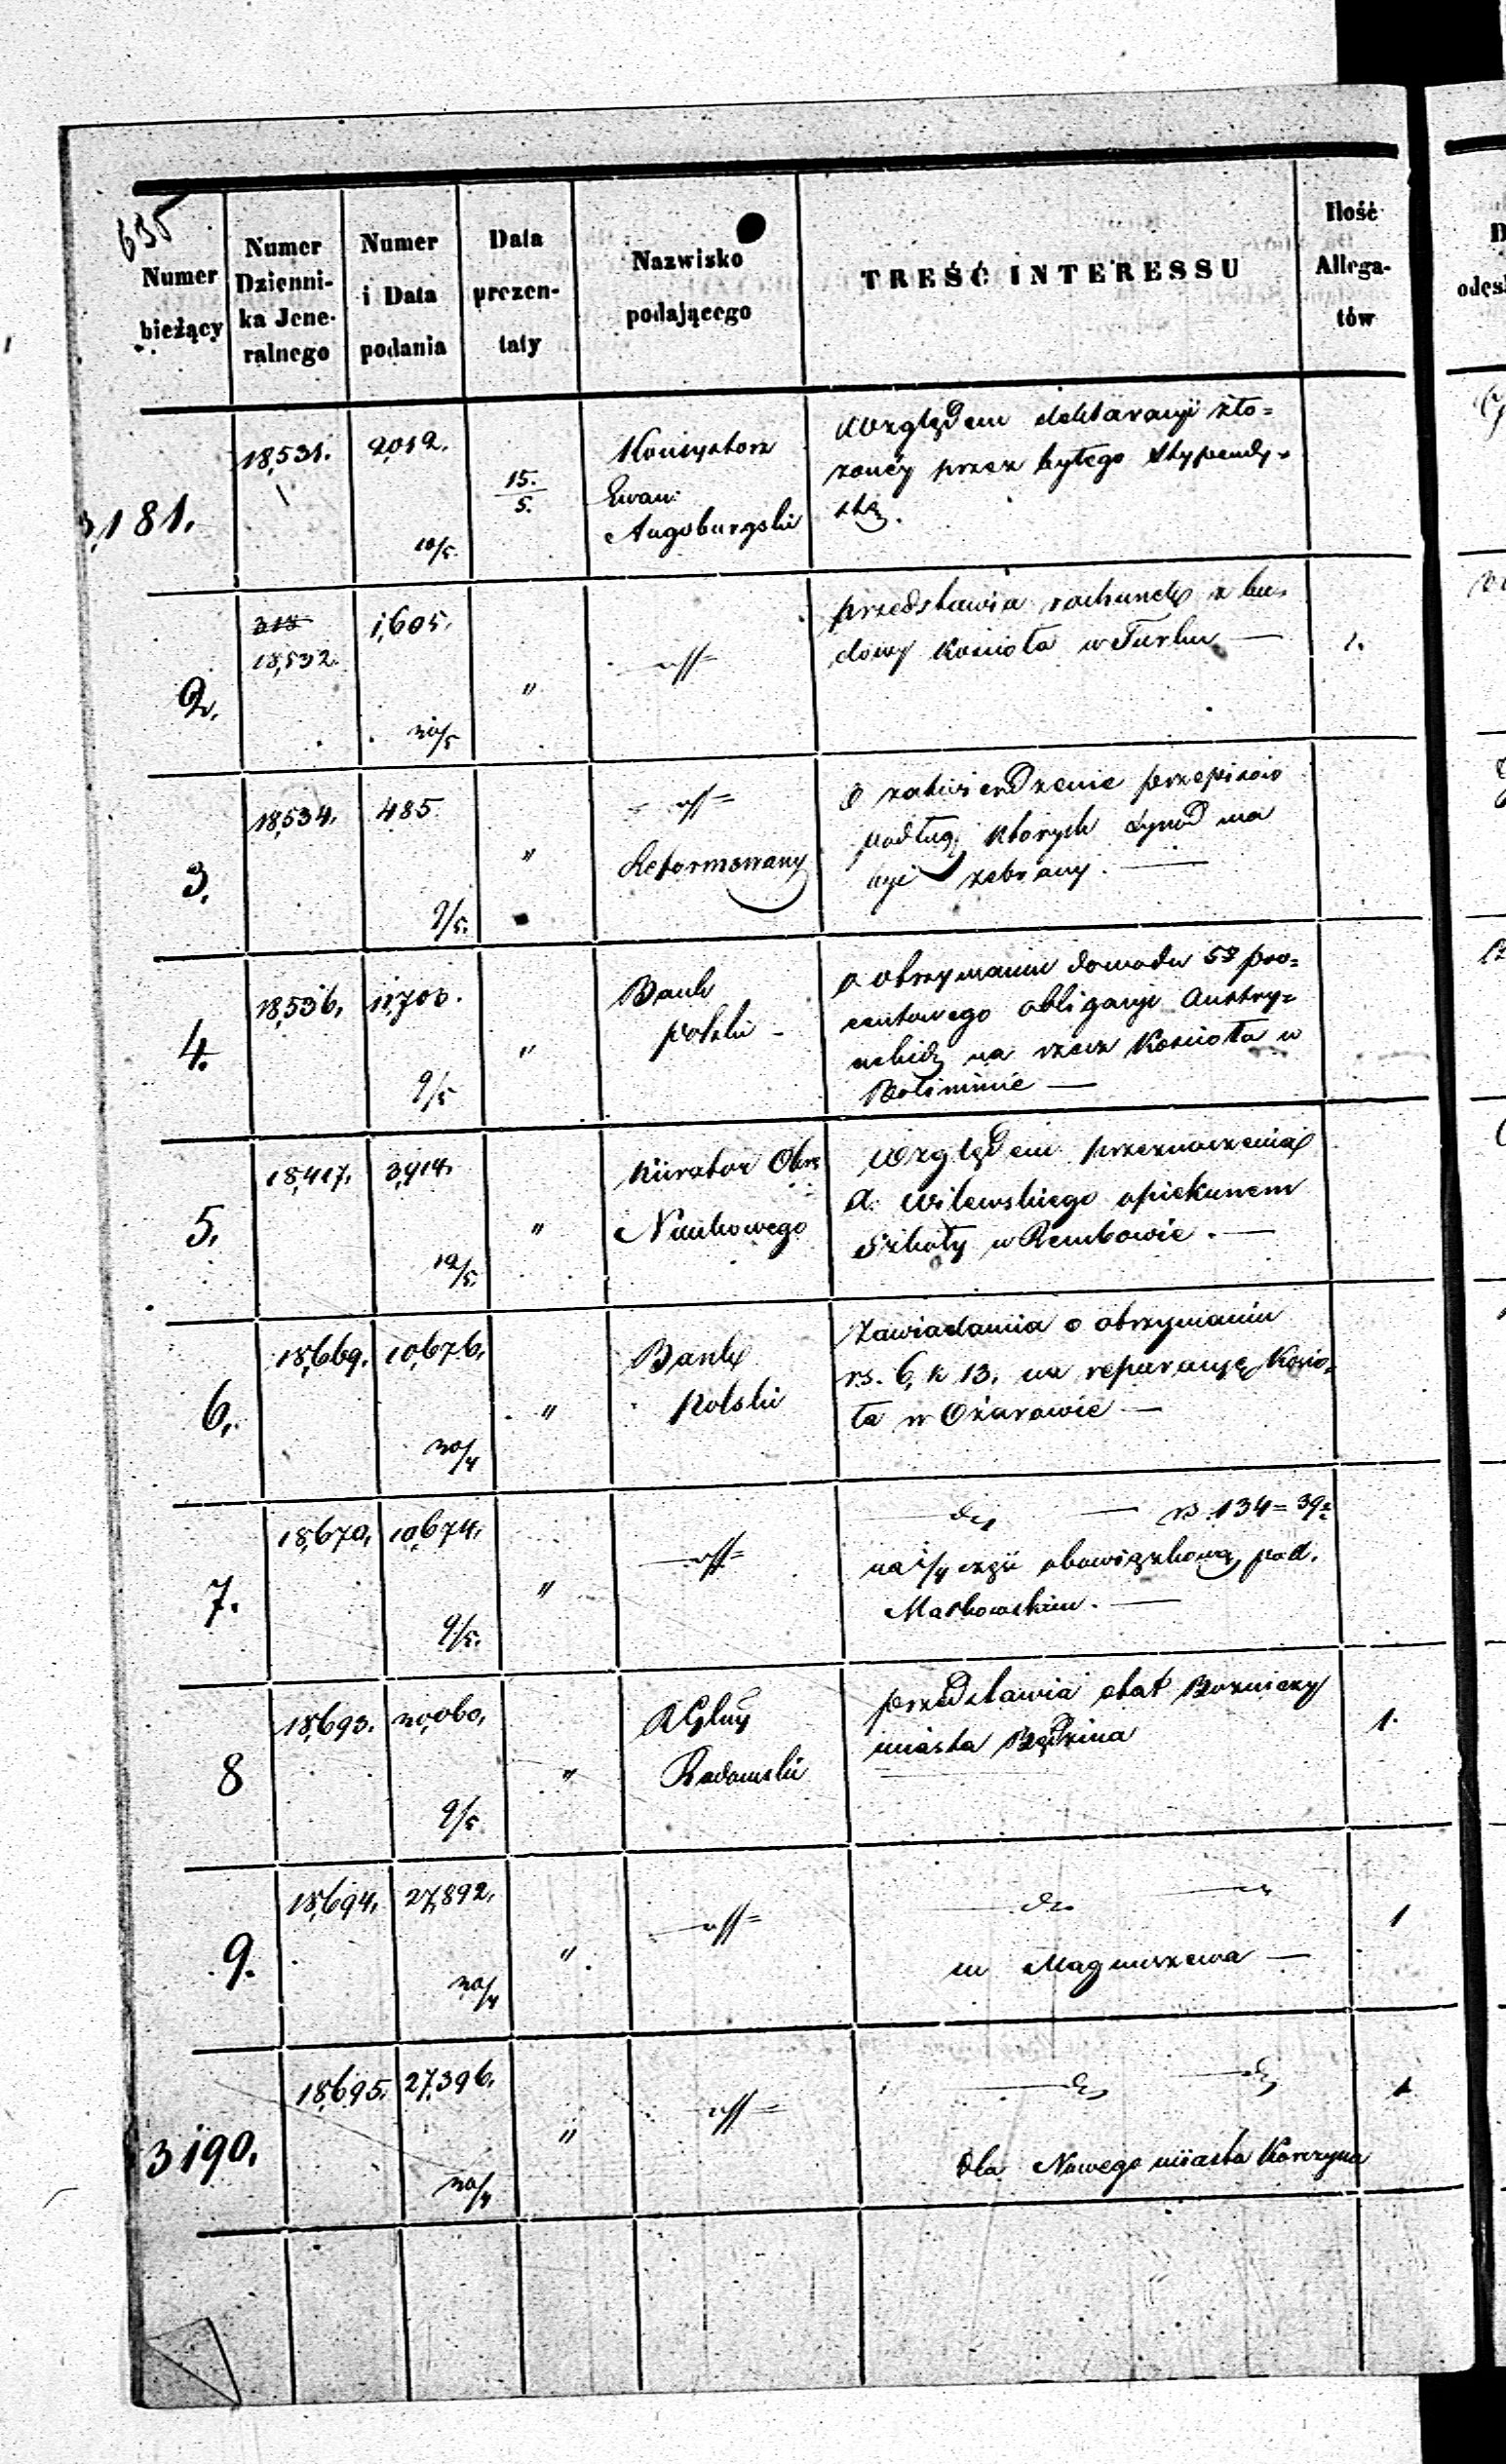 635
Numer bieżący
Numer Dzienni-
ka Jene-
ralnego
Numer i Data podania
Data prezen-
taty
Nazwisko podającego
TREŚĆ INTERESSU
Ilość Allega-
tów
3,181.
18,531.
2,012.
10/5.
15.
5.
Konsystorz
Ewan:
Augsburgski
Względem deklaracyi zło=
zonéy przez byłego stypendy=
stę.
2.
318
18,532.
1,605.
10/5
"
przedstawia rachunek z bu=
dowy Kościoła w Turku —
1.
3.
18,534.
485.
9/5.
"
Reformowany
O zatwierdzenie przepisów
podług których Synod ma
być zebrany. —
4.
18,536.
11,700.
9/5
"
Bank
Polski -
o otrzymaniu dowodu 5% pro=
centowego obligacyi Austry=
ackiéy na rzecz Kościoła w
—
5.
18,417.
3,914.
12/5.
"
Kurator Okrę
Naukowego
Względem przeznaczenia
A. Wilewskiego opiekunem
Szkoły w Rembowie. —
6.
18,669.
10,676.
30/4
"
Bank
Polski
Zawiadamia o otrzymaniu
rs. 6, k 13. na reparacyę Kościo=
ła w Ożarowie —
7.
18,670.
10,674.
9/5.
"
do — rs. 134=39½
na 1/4 częśi obowiązkową pod.
Maskowskim. —
8
18,693.
30,060.
9/5.
"
RGlny
Radomski
przedstawia etat Bożniczy
miasta Będzina
1.
9.
18,694.
27,892.
30/4
"
do —
m Magnuszewa —
1
3190.
18,695.
27,396.
30/4
"
do do
dla Nowego miasta Korczyna
1